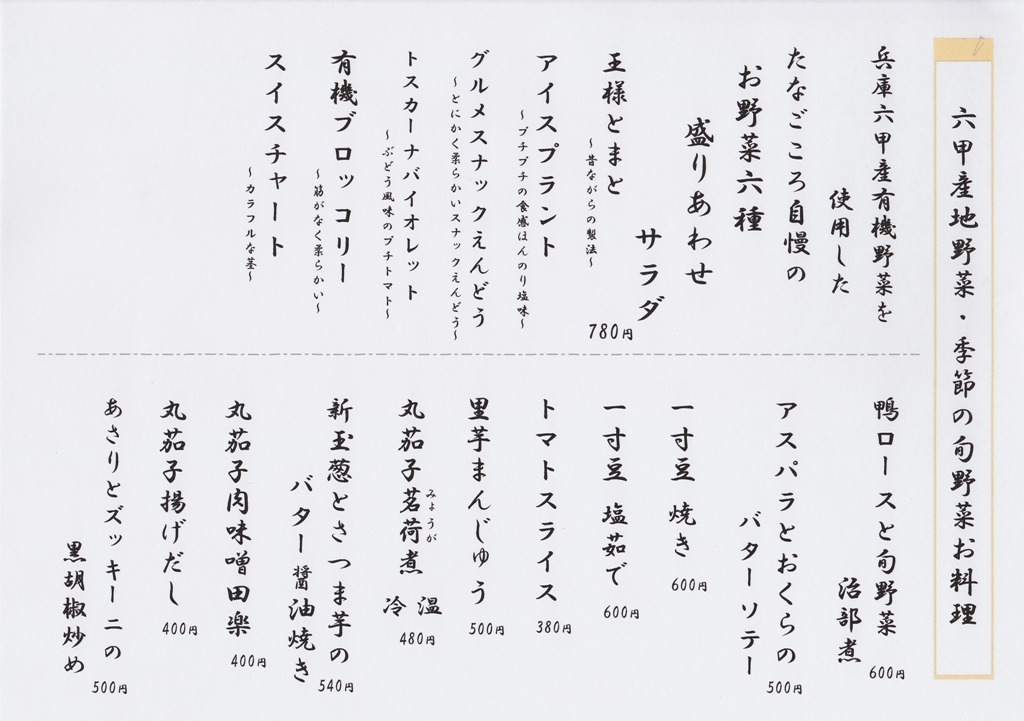 六甲産地野菜・季節の旬野菜お料理
兵庫六甲産有機野菜を
使用した
たなごころ自慢の
お野菜六種
盛りあわせ
サラダ
780円
王様とまと
～昔ながらの製法～
アイスプラント
～プチプチの食感ほんのり塩味～
グルメスナックえんどう
～とにかく柔らかいスナックえんどう～
トスカーナバイオレット
～ぶどう風味のプチトマト～
有機ブロッコリー
～筋がなく柔らかい～
スイスチャート
～カラフルな茎～
鴨ロースと旬野菜
治部煮
600円
アスパラとおくらの
バターソテー
500円
一寸豆 焼き
600円
一寸豆 塩茹で
600円
トマトスライス
380円
里芋まんじゅう
500円
丸茄子茗荷煮 温
みょうが
冷
480円
新玉葱とさつま芋の
バター醤油焼き
540円
丸茄子肉味噌田楽
400円
丸茄子揚げだし
400円
あさりとズッキーニの
黒胡椒炒め
500円